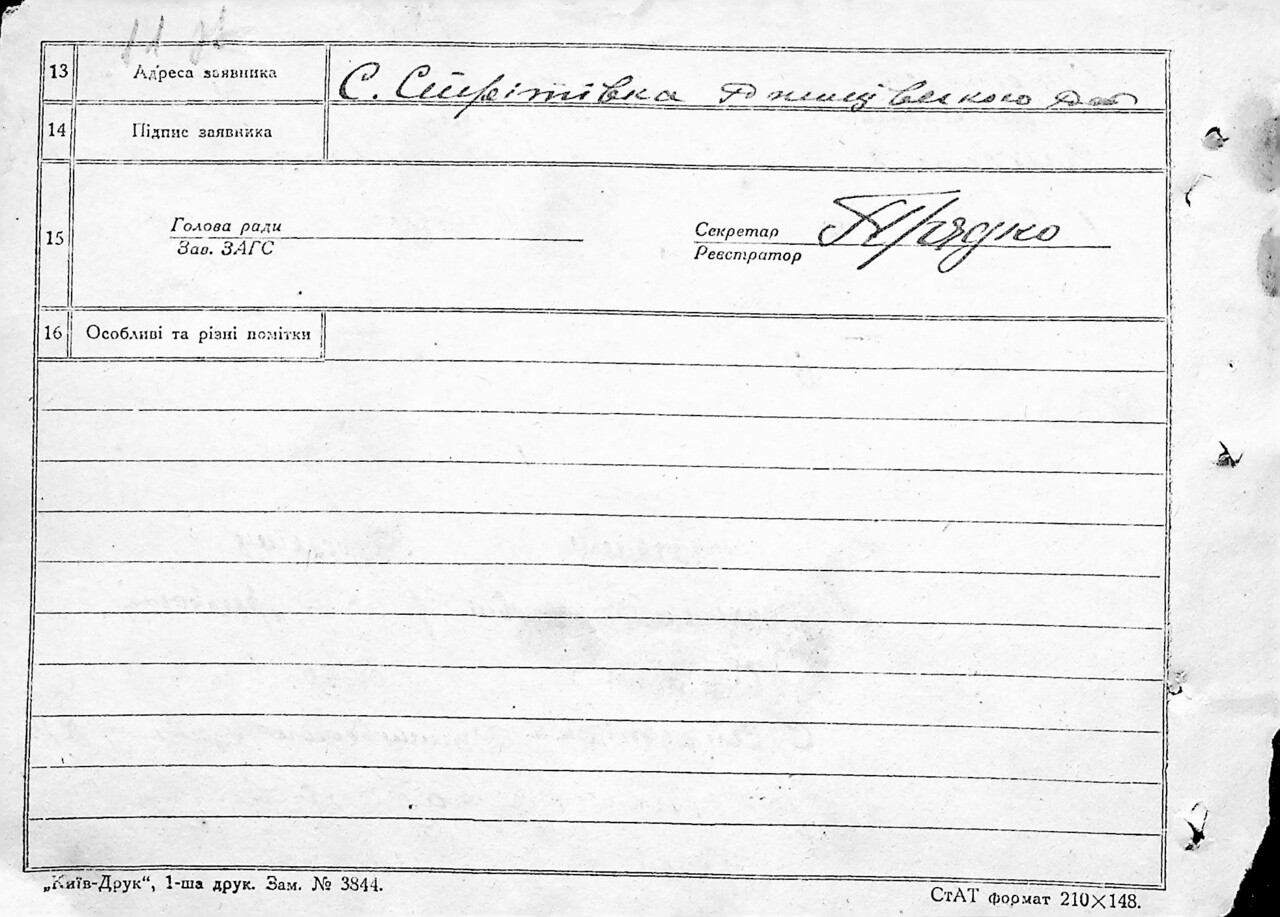 13 Адреса заявника С. Стрітівка Ржищівського р-ну
14 Підпис заявника
15 Голова ради
Зав. ЗАГС
Секретар Прядко
Реєстратор
16 Особливі та різні помітки
„Київ-Друк“, 1-ша друк. Зам. № 3844.
СтАТ формат 210×148.